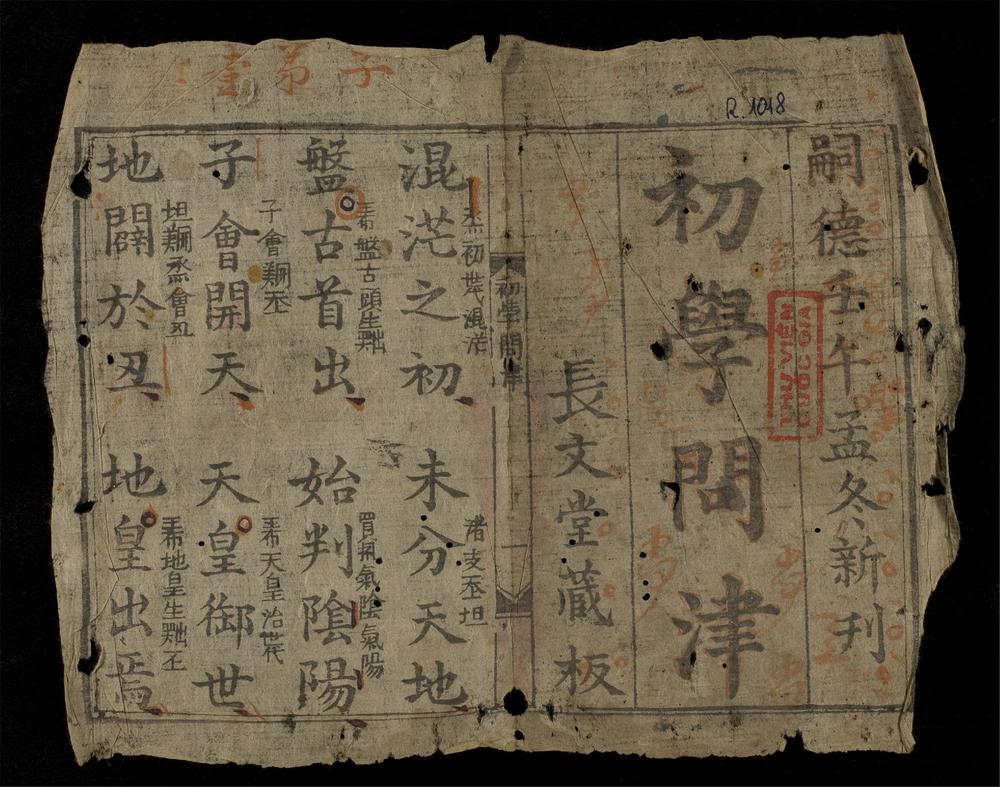 R.1018
嗣德壬午孟冬新刊
THƯ VIỆN
QUỐC GIA
初學問津
長文堂藏板
初學問津
一
混茫之初
初世混茫
未分天地
渚支丕坦
盤古首出
盤古頭生
始判陰陽
氣陰氣陽
子會開天
子會
天皇御世
天皇治
地闢於丑
坦
會丑
地皇出焉
地皇生